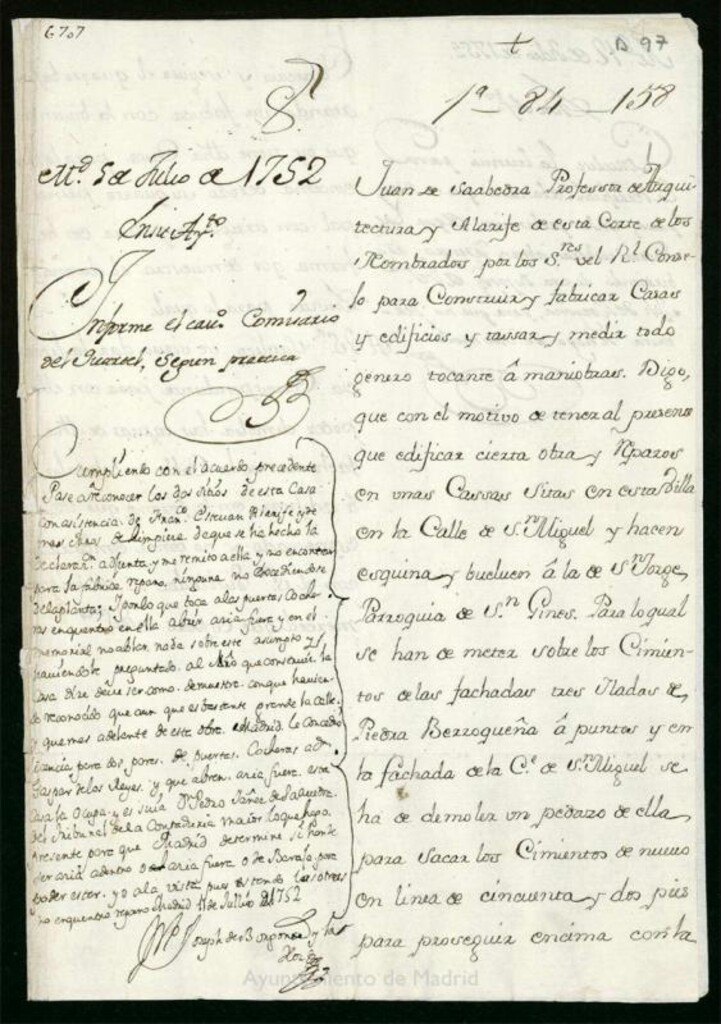 6707
B 97
1ª 84 158
Md. 5 de Julio de 1752
En su Ayto.
Informe el cavo. Comisario
del Quartel, segun practica
Cumpliendo con el acuerdo precedente
Pase a reconocer los dos sitios de esta Casa
con asistencia de Franco. Estevan Alarife y de
mas Mros. de Limpieza de que se ha hecho la
Declaracn. adjunta, y me remito a ella y no encontran
para la fabrica reparo, ninguno no excediendose
de la planta; Y por lo que toca a las puertas Coche
ras encuentro en ella abrir acia fuera y en el
memorial no ablan nada sobre este asumpto y
haviendole preguntado al Mro que construie la
Casa dize deve ser como demuestra con que havien
do reconocido que aun que es bastante grande la Calle
y que mas adelante de esta obra Madrid le Concedio
licencia para dos pares de puertas Cocheras a dn.
Gaspar de los Reyes y que abren acia fuera esta
Casa la Ocupa y es suia Dn Pedro Yañez de Saavedra
del Tribunal de la Contaduria maior lo que hago
presente para que Madrid determine si han de
ser acia adentro o acia fuera o de Barajo para
poder estar yo a la vista pues en todas las otras
no encuentro reparo Madrid 11 de Jullio de 1752
Joseph de
Juan de Saabedra Professor de Arqui
tectura y Alarife de esta Corte de los
Nombrados por los Sres. del Rl. Conse-
lo para Construir y fabricar Casas
y edificios y tassar y medir todo
genero tocante â maniobras. Digo,
que con el motivo de tener al presente
que edificar cierta obra y Reparos
en unas Cassas Sitas en esta Villa
en la Calle de Sn. Miguel y hacen
esquina y buelven â la de Sn. Jorge,
Parroquia de Sn. Gines. Para lo qual
se han de meter sobre los Cimien-
tos de las fachadas tres Iladas de
Piedra Berroqueña â puntas y en
la fachada de la Ce. de Sn. Miguel se
ha de demoler un pedazo de ella
para Sacar los Cimientos de nuevo
en linea de cinquenta y dos pies
para proseguir encima con la
Ayuntamiento de Madrid